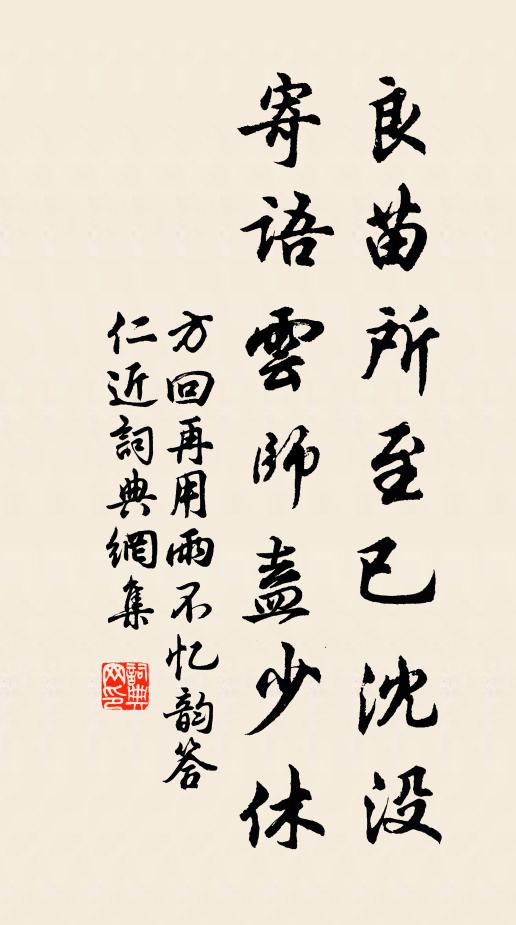 良苗所至已沈没
寄語雲師盍少休
方回再用雨不忆韵答
仁近詞典網集
詞典网印